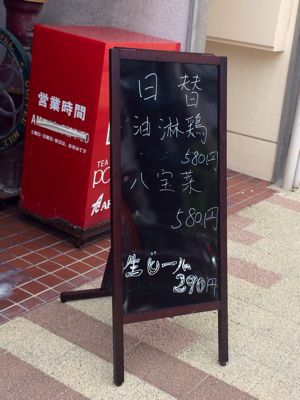 営業時間
日替
油淋鶏
580円
八宝菜
580円
生ビール
290円